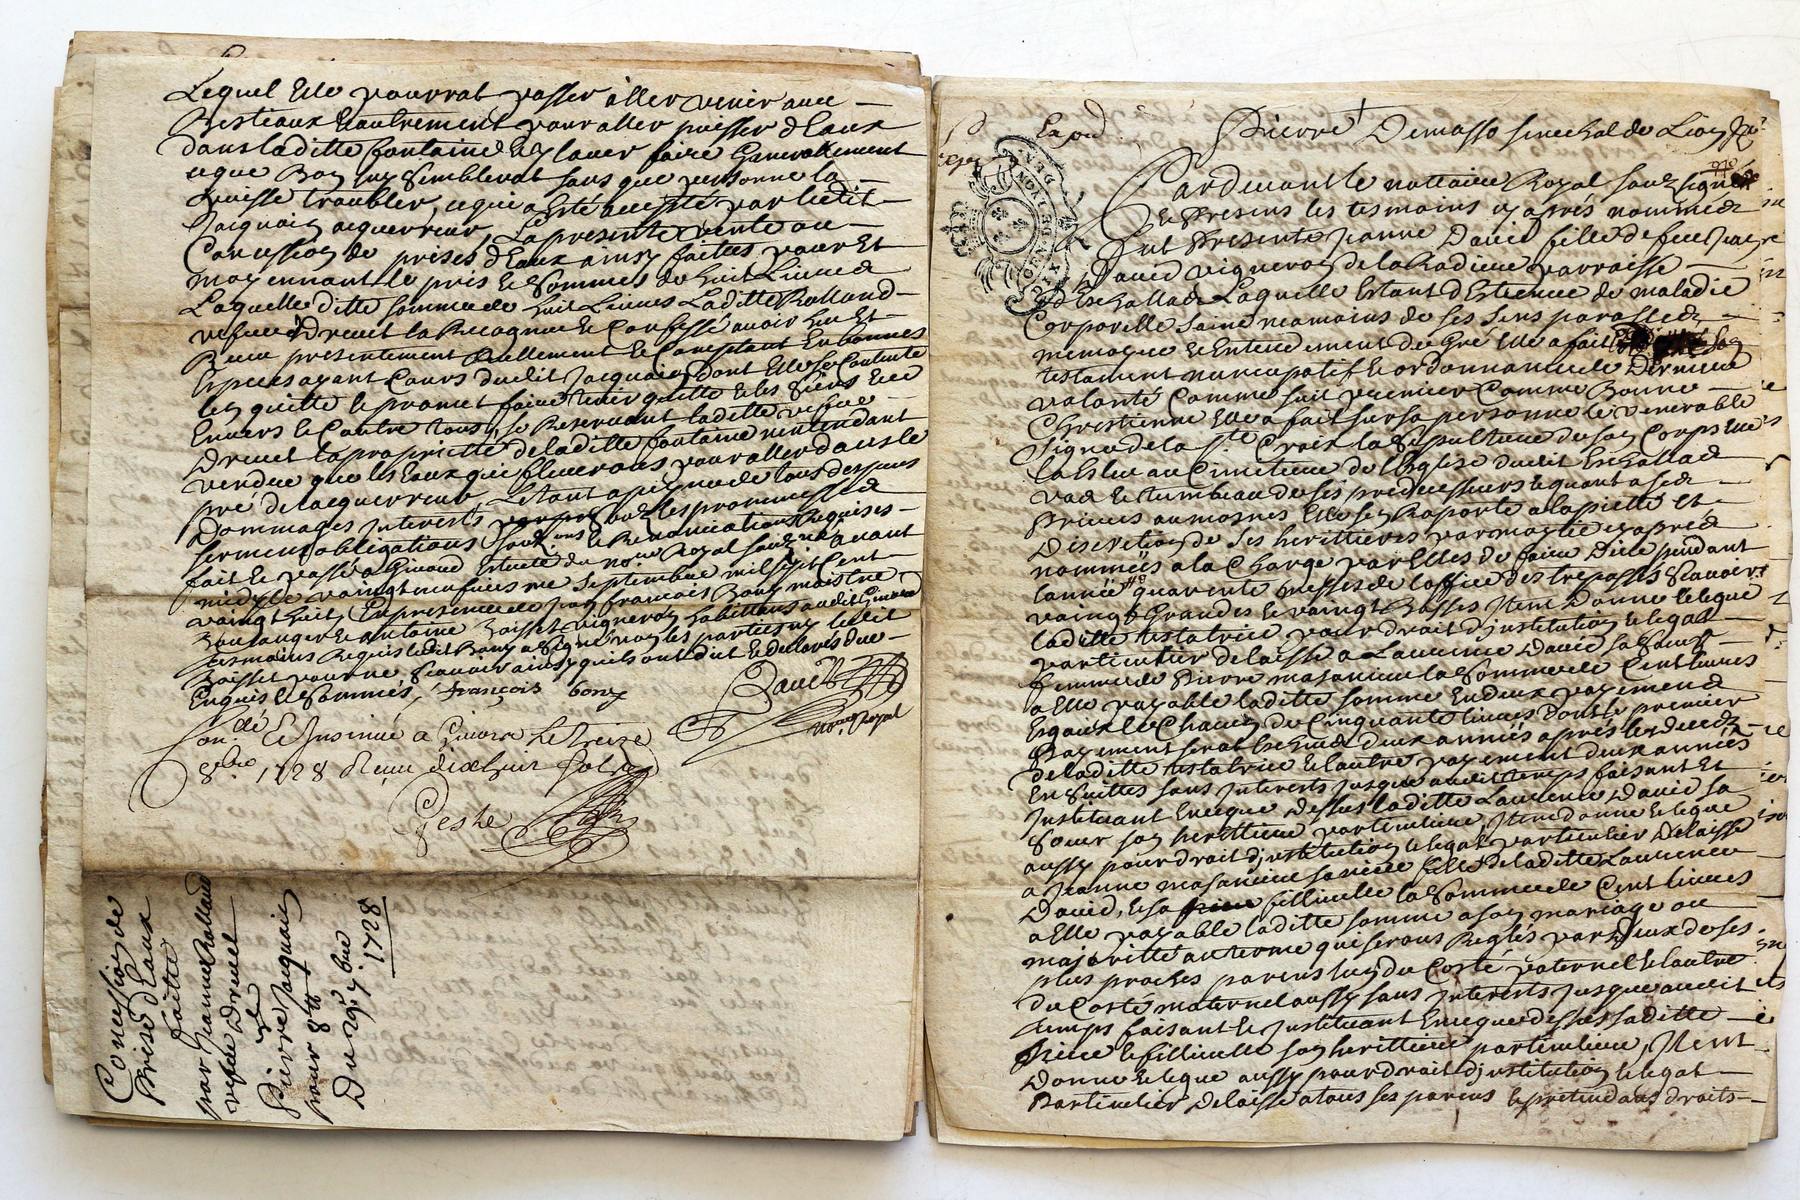 Lequel Elle pourrat passer aller venir avec
Bestiaux Et autrement pour aller puisser d Eaux
dans laditte fontaine Et y laver faire Generallement
ce que Bon luy Semblerat sans que personne la
puisse troubler, ce qui a Esté accepté par ledit
Jacquain acquerreur, La presente vente ou
Concession de prises d'Eaux ainsy faittes pour Et
moyennant le prix Et Somme de huit Livres
Laquelle ditte somme de huit Livres Laditte Rolland
vefue Drevet la Recognue Et Confessé avoir heu Et
Receu presentement Reellement Et Comptant En bonnes
Especes ayant Cours dudit Jacquain, dont Elle Se Contente
Len quitte Et promet faire tenir quitte Et les Siens
Envers Et Contre tous, se Reservant laditte vefue
Drevet la proprieté de laditte fontaine n'entendant
vendre que les Eaux qui flueront pour aller dans le
pré de lacquerreur Le tout a peyne de tous despens
Dommages Interests par promesses
serment obligations Et Renonciations Requises
fait Et passé a Givord Estude du no.re Royal Sousigné avant
midy Le vaingt neufiesme Septembre mil sept Cent
vaingt huit, En presence de françois Bony maistre
Boulanger Et antoine Baisset vigneron habittans audit Givord
tesmoins Requis ledit Bony a Signé non les parties ny ledit
Baisset pour ne Scavoir ainsy qu'ils ont dit Et declarés de ce
Enquis Et Sommés, françois bony
David
no.re Royal
Con.llé Et Insinué a Givors Le treize
8bre 1728 Receu dix huit sols
Geste
Concession de
Prise d'Eaux
faitte
par Jeanne Rolland
vefue Drevet
a
Pierre Jacquain
pour 8 ll
Du 29.e 7.bre
1728
Expd.
GEN. DE LION
Pierre Demasso senechal de Lion
Pardevant le nottaire Royal Sousigné
Et Presens les tesmoins cy apres nommés
fut Presente Jeanne David fille de feu
David vigneron de la Radiere parroisse
d'Eschallas Laquelle Estant d'Etenue de maladie
Corporelle Saine neamoins de ses Sens parolles
memoire Et Entendement de Gré Elle a fait Son
testament nuncupatif Et ordonnance de Derniere
volonté Comme suit, premier Comme Bonne
Chrestienne Elle a fait sur sa personne le venerable
Signe de la S.te Croix la Sepulture de son Corps
la Esleu au Cimitiere de l'Eglise dudit Eschallas
vas Et tumbeau de ses predecessurs Et quant a ses
Prieres aumosnes Elle s'en Raporte a la pietté et
Discretion de ses herittieres par moytié cy aprés
nommées a la Charge par Elles de faire Dire pendant
l'année quarente messes de l'office des trepassés Scavoir
vaingt Grandes Et vaingt Basses Item Donne Et legue
laditte testatrice pour droit d'institution Et legat
particulier delaisse a Laurence David sa Soeur
femme de Pierre masancieu la Somme de Cent livres
a Elle payable laditte somme En deux payemens
Egaux de Chacun de Cinquante livres dont le premier
Payement serat Escheu deux années aprés le decedz
de laditte testatrice Et lautre payement deux années
En Suittes sans Interests jusque audit temps faisant Et
Instituant En ce que dessus laditte Laurence David sa
Soeur son herittiere particuliere, Item donne Et legue
aussy pour droit d'institution Et legat particulier Delaisse
a Jeanne masancieu sa niece fille de laditte Laurence
David, Et sa fillieulle la Somme de Cent livres
a Elle payable laditte somme a son mariage ou
majoritté au terme que seront Reglés par Deux de ses
plus proches parens lun du Costé paternel Et lautre
du Costé maternel aussy sans Interests jusque audit
temps faisant Et Instituant En ce que dessus laditte
niece Et fillieulle son herittiere particuliere, Item
Donne Et legue aussy pour droit d'institution Et legat
Particulier Delaisse a tous ses parens Et pretendans droits